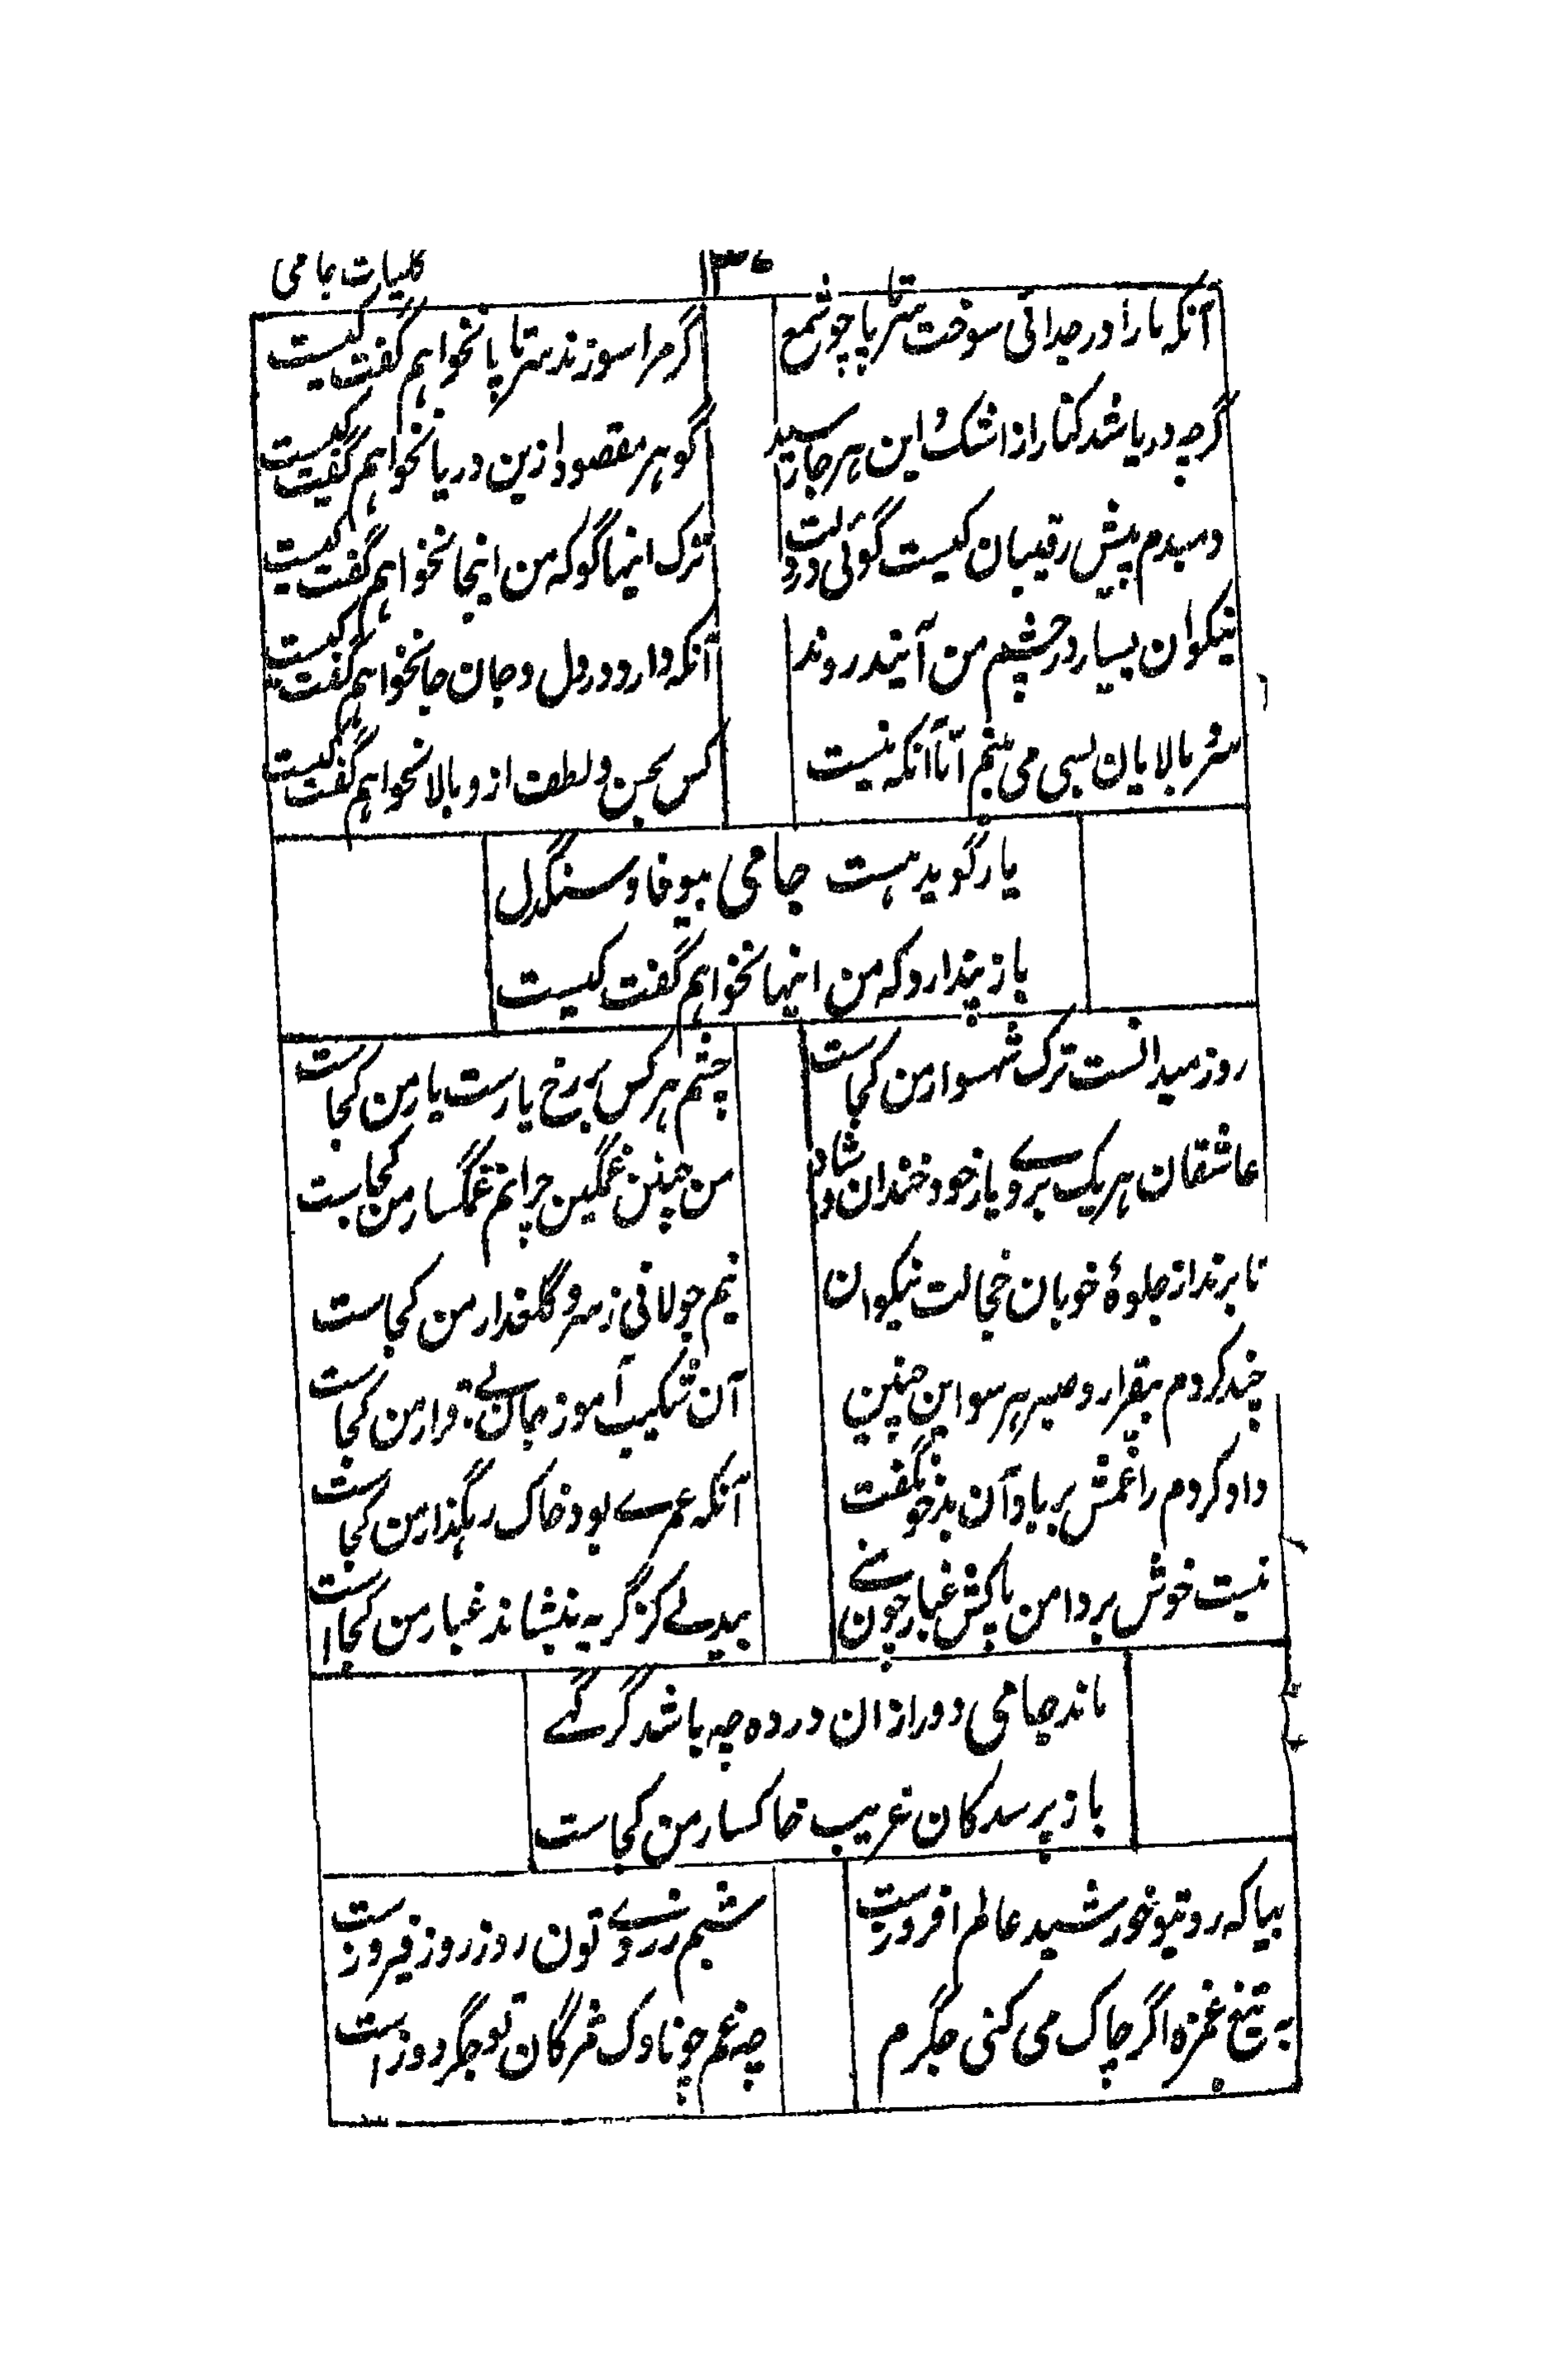 کلیات جامی
آنکه مارا در جدائی سوخت سرتا پا چو شمع
گر مرا سوزند سرتا پا نخواهم گفت کیست
گرچه دریا شد کنار از اشک و این هر جا رسید
گوهر مقصود ازین دریا نخواهم گفت کیست
دمبدم پیش رقیبان کیست گوئی در دلت
ترک اینها گو که من اینجا نخواهم گفت کیست
نیکوان بسیار در چشم من آیند و روند
آنکه دارد در دل و جان جا نخواهم گفت کیست
سرو بالایان بسی می بینم اما آنکه نیست
کس بحسن و لطف ازو بالا نخواهم گفت کیست
یار گوید هست جامی بیوفا و سنگدل
باز پندارد که من اینها نخواهم گفت کیست
روز میدانست ترک شهسوار من کجاست
چشم هر کس بر رخ یارست یار من کجاست
عاشقان هر یک بروی یار خود خندان و شاد
من چنین غمگین چرایم غمگسار من کجاست
تا برند از جلوۀ خوبان خجالت نیکوان
نیم جولانی زسرو گلعذار من کجاست
چند گردم بیقرار و صبر هر سو این چنین
آن شکیب آموز جان بے قرار من کجاست
داد گردم را غمش بر باد آن بدخو نگفت
آنکه عمرے بود خاک رهگذار من کجاست
نیست خوش بر دامن پاکش غبار چون منے
بیدلے کز گریه بنشاند غبار من کجاست
ماند جامی دور ازان در وه چه باشد گر گہے
باز پرسد کان غریب خاکسار من کجاست
بیا که رویتو خورشید عالم افروزست
شبم ز روے تون روز روز فیروزست
به تیغ غمزه اگر چاک می کنی جگرم
چه غم چو ناوک مژگان تو جگر دوز است